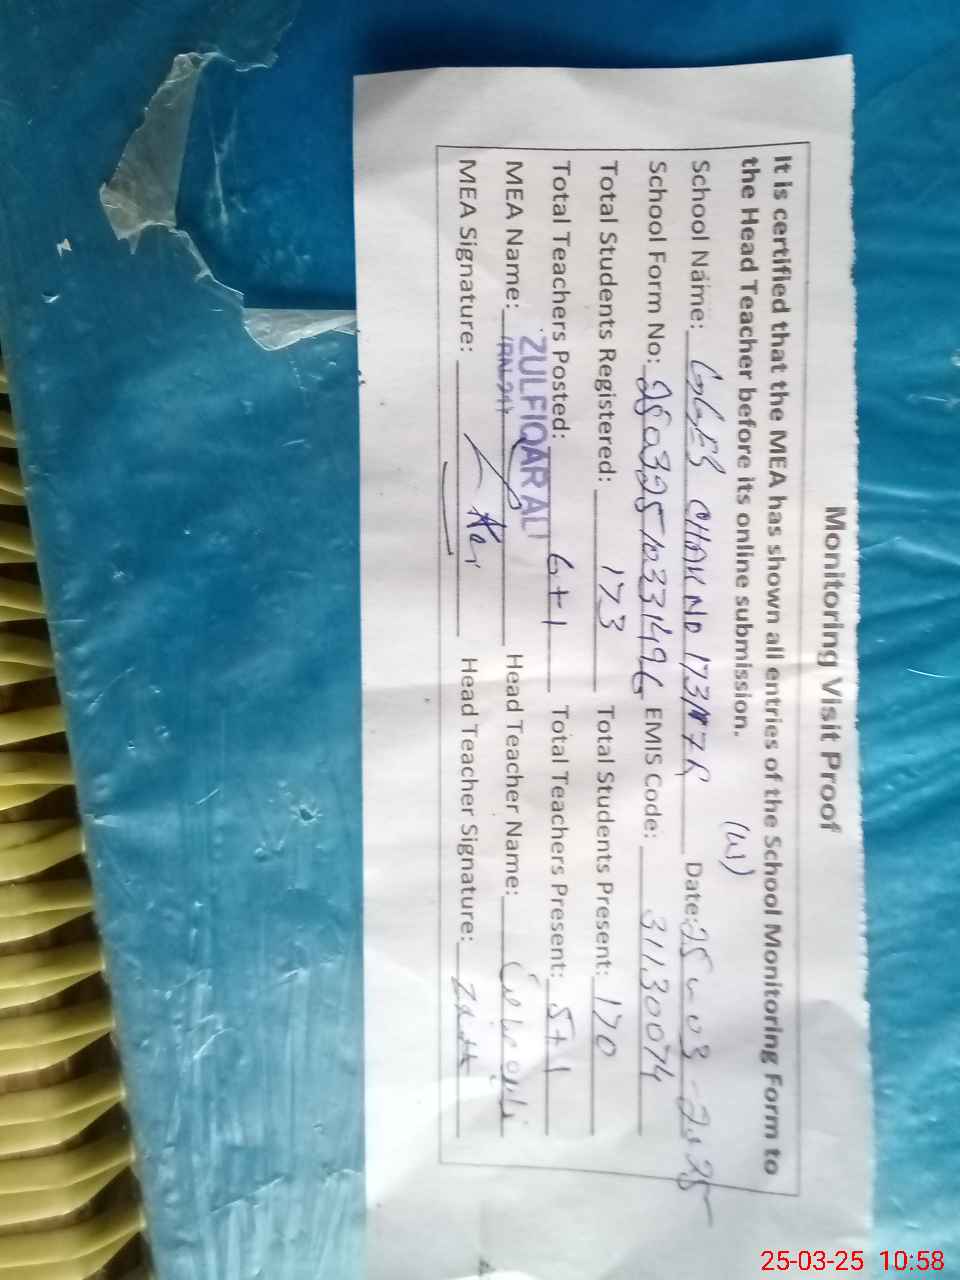 Monitoring Visit Proof
It is certified that the MEA has shown all entries of the School Monitoring Form to
the Head Teacher before its online submission.
(W)
School Name: GGES CHAK NO 173/7R Date: 25-03-2025
School Form No: EMIS Code: 31130074
Total Students Registered: 173 Total Students Present: 170
Total Teachers Posted: 6+1 Total Teachers Present: 5+1
MEA Name: ZULFIQAR ALI Head Teacher Name:
MEA Signature: Head Teacher Signature:
25-03-25 10:58